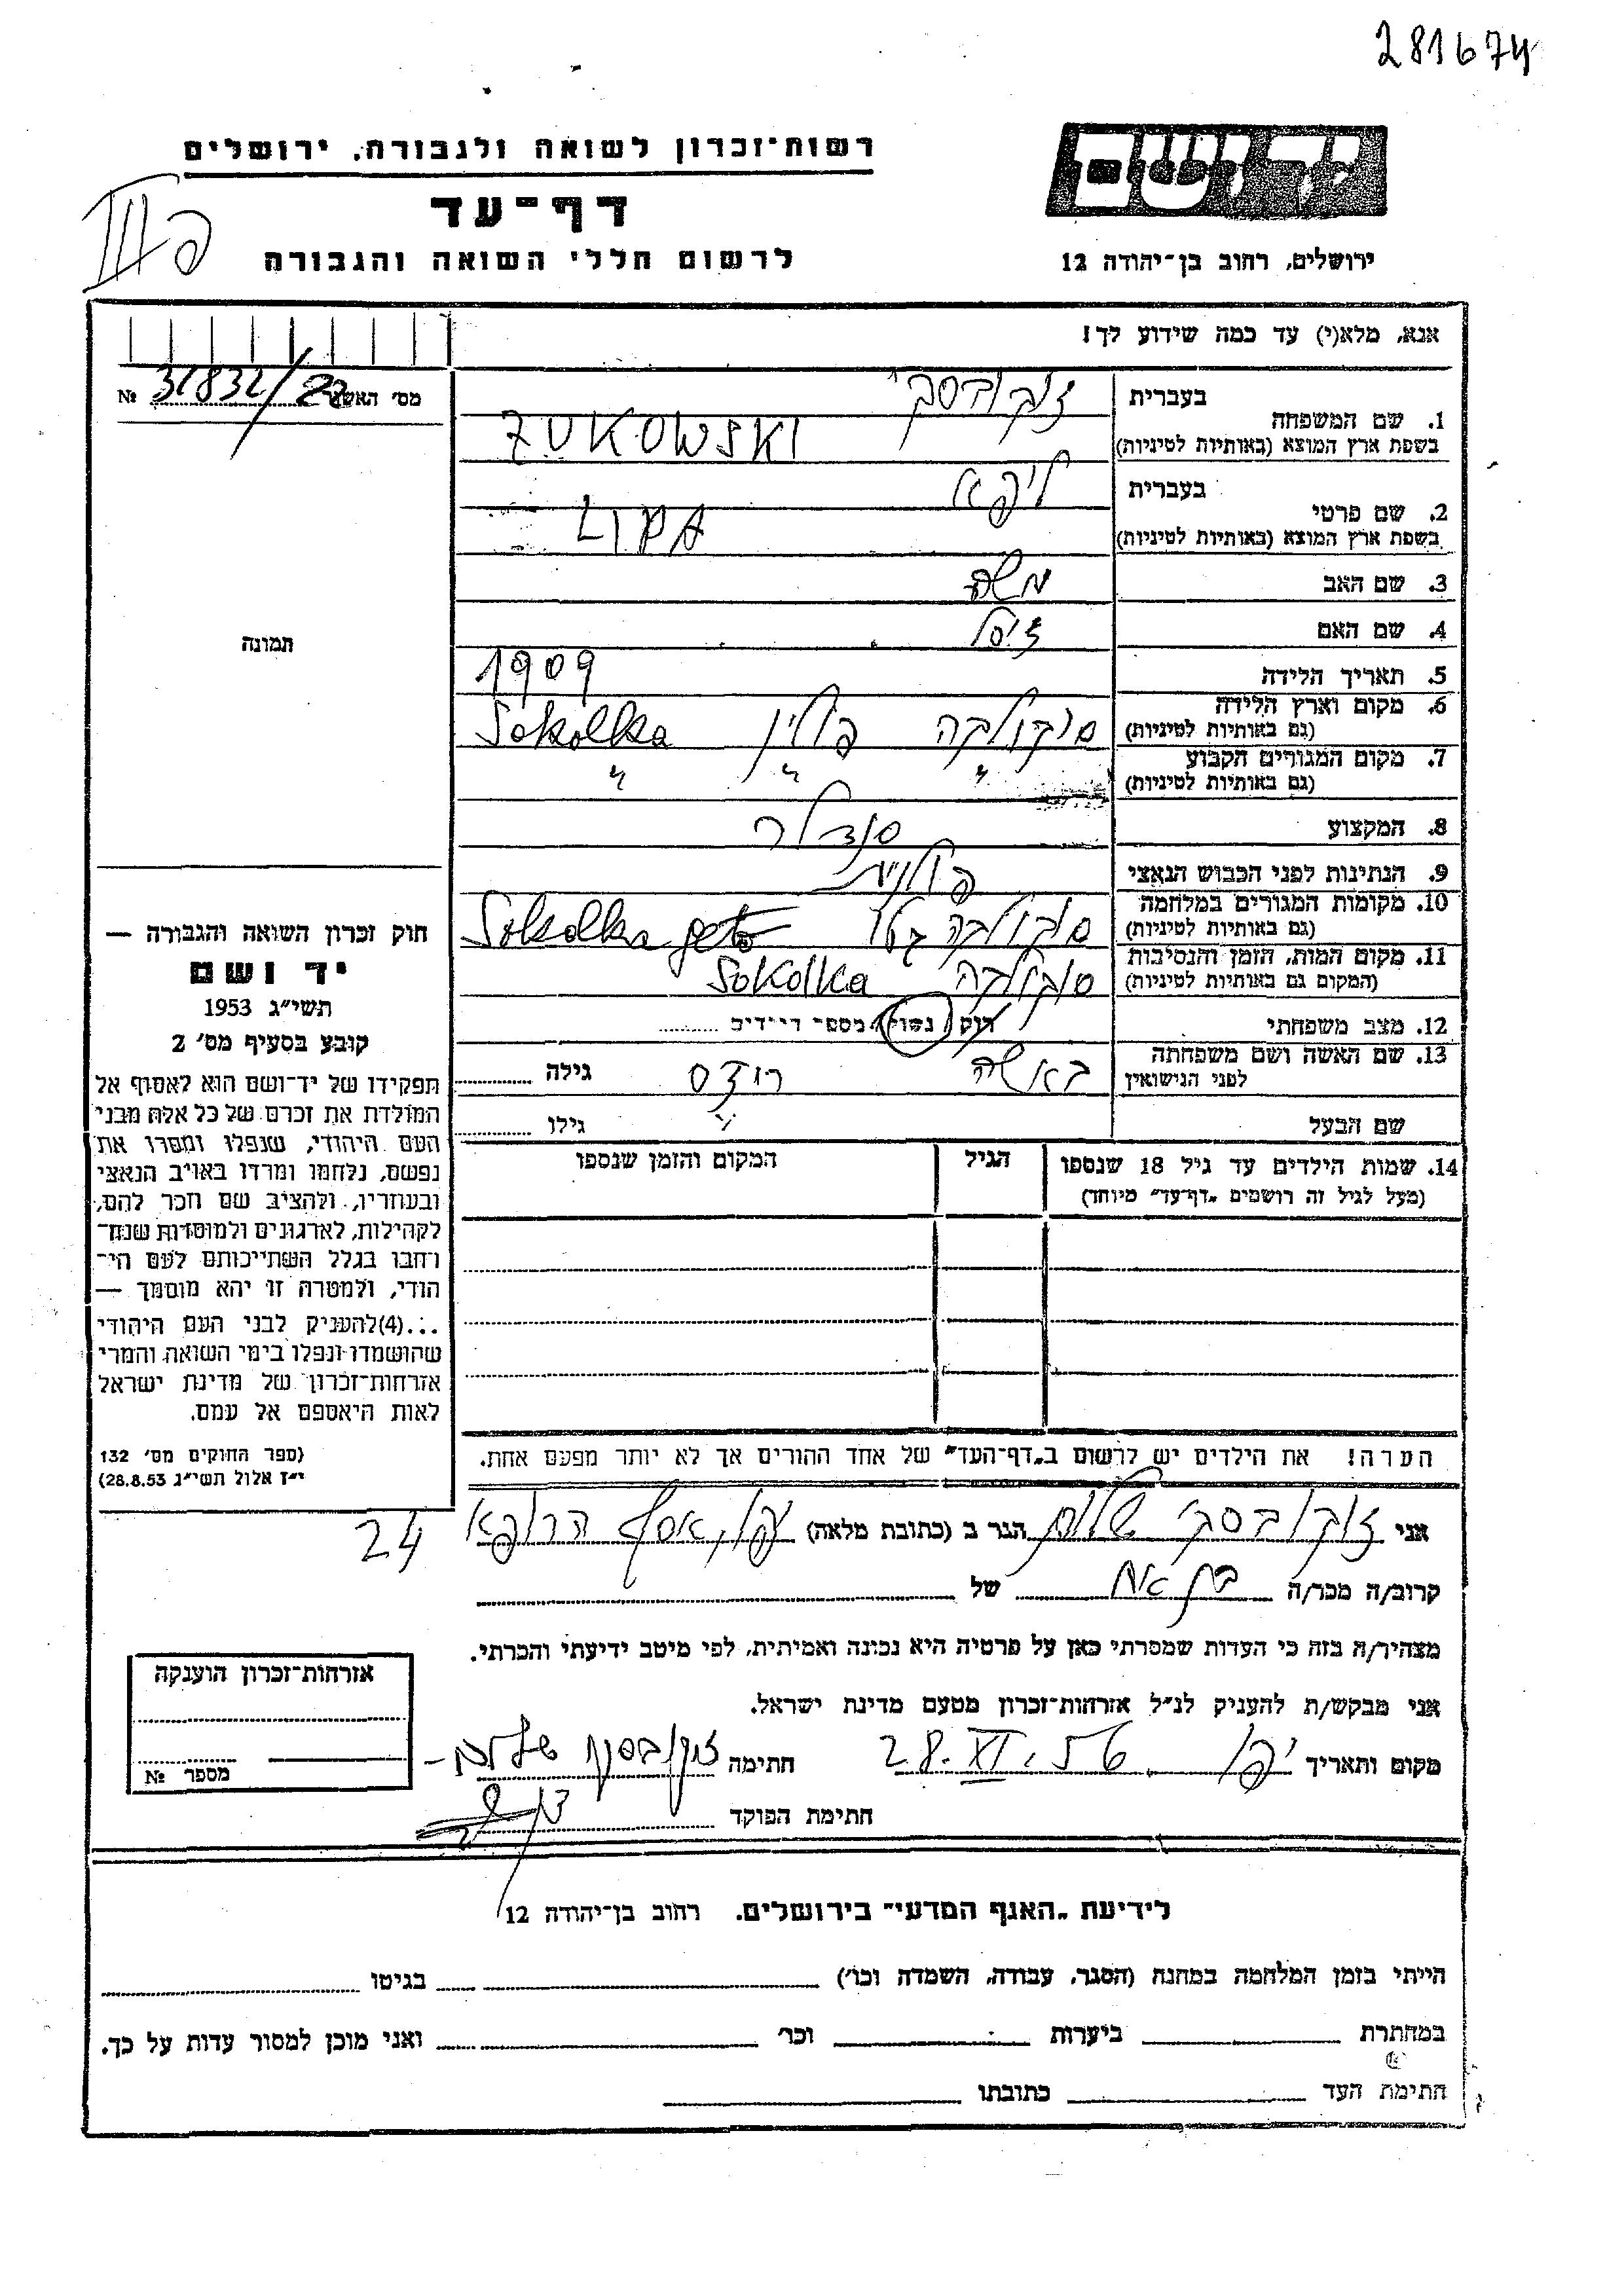 281674
יד ושם
רשות־זכרון לשואה ולגבורה, ירושלים
דף־עד
לרשום חללי השואה והגבורה
ירושלים, רחוב בן־יהודה 12
פ III
אנא, מלא(י) עד כמה שידוע לך!
מס׳ האשה № 31832/22
בעברית זוקובסקי
1. שם המשפחה
בשפת ארץ המוצא (באותיות לטיניות) ZUKOWSKI
בעברית ליפא
2. שם פרטי
בשפת ארץ המוצא (באותיות לטיניות) LIPA
3. שם האב משה
4. שם האם
5. תאריך הלידה 1909
6. מקום וארץ הלידה סוקולקה פולין Sokolka
(גם באותיות לטיניות)
7. מקום המגורים הקבוע " " "
(גם באותיות לטיניות)
8. המקצוע סנדלר
9. הנתינות לפני הכבוש הנאצי פולנית
10. מקומות המגורים במלחמה סוקולקה גטו Sokolka geto
(גם באותיות לטיניות)
11. מקום המות, הזמן והנסיבות סוקולקה Sokolka
(המקום גם באותיות לטיניות)
12. מצב משפחתי רוק / נשוי / מספר הילדים
13. שם האשה ושם משפחתה באשה גילה
לפני הנישואין
שם הבעל גילו
14. שמות הילדים עד גיל 18 שנספו הגיל המקום והזמן שנספו
(מעל לגיל זה רושמים „דף־עד" מיוחד)
הערה! את הילדים יש לרשום ב„דף־העד" של אחד ההורים אך לא יותר מפעם אחת.
תמונה
חוק זכרון השואה והגבורה —
יד ושם
תשי״ג 1953
קובע בסעיף מס׳ 2
תפקידו של יד־ושם הוא לאסוף אל
המולדת את זכרם של כל אלה מבני
העם היהודי, שנפלו ומסרו את
נפשם, נלחמו ומרדו באויב הנאצי
ובעוזריו, ולהציב שם וזכר להם,
לקהילות, לארגונים ולמוסדות שנח־
רחבו בגלל השתייכותם לעם הי־
הודי, ולמטרה זו יהא מוסמך —
...(4)להעניק לבני העם היהודי
שהושמדו ונפלו בימי השואה והמרי
אזרחות־זכרון של מדינת ישראל
לאות היאספם אל עמם.
(ספר החוקים מס׳ 132
י״ז אלול תשי״ג 28.8.53)
אני זוקובסקי שלום הגר ב (כתובת מלאה) יפו, אסף הרופא 24
קרוב/ה מכר/ה בן אח של
מצהיר/ה בזה כי העדות שמסרתי כאן על פרטיה היא נכונה ואמיתית, לפי מיטב ידיעתי והכרתי.
אני מבקש/ת להעניק לנ״ל אזרחות־זכרון מטעם מדינת ישראל.
מקום ותאריך יפו, 28.XI.56 חתימה זוקובסקי שלום
חתימת הפוקד
אזרחות־זכרון הוענקה
מספר №
לידיעת „האגף המדעי" בירושלים. רחוב בן־יהודה 12
הייתי בזמן המלחמה במחנה (הסגר, עבודה, השמדה וכו׳) בגיטו
במחתרת ביערות וכו׳ ואני מוכן למסור עדות על כך.
חתימת העד כתובתו